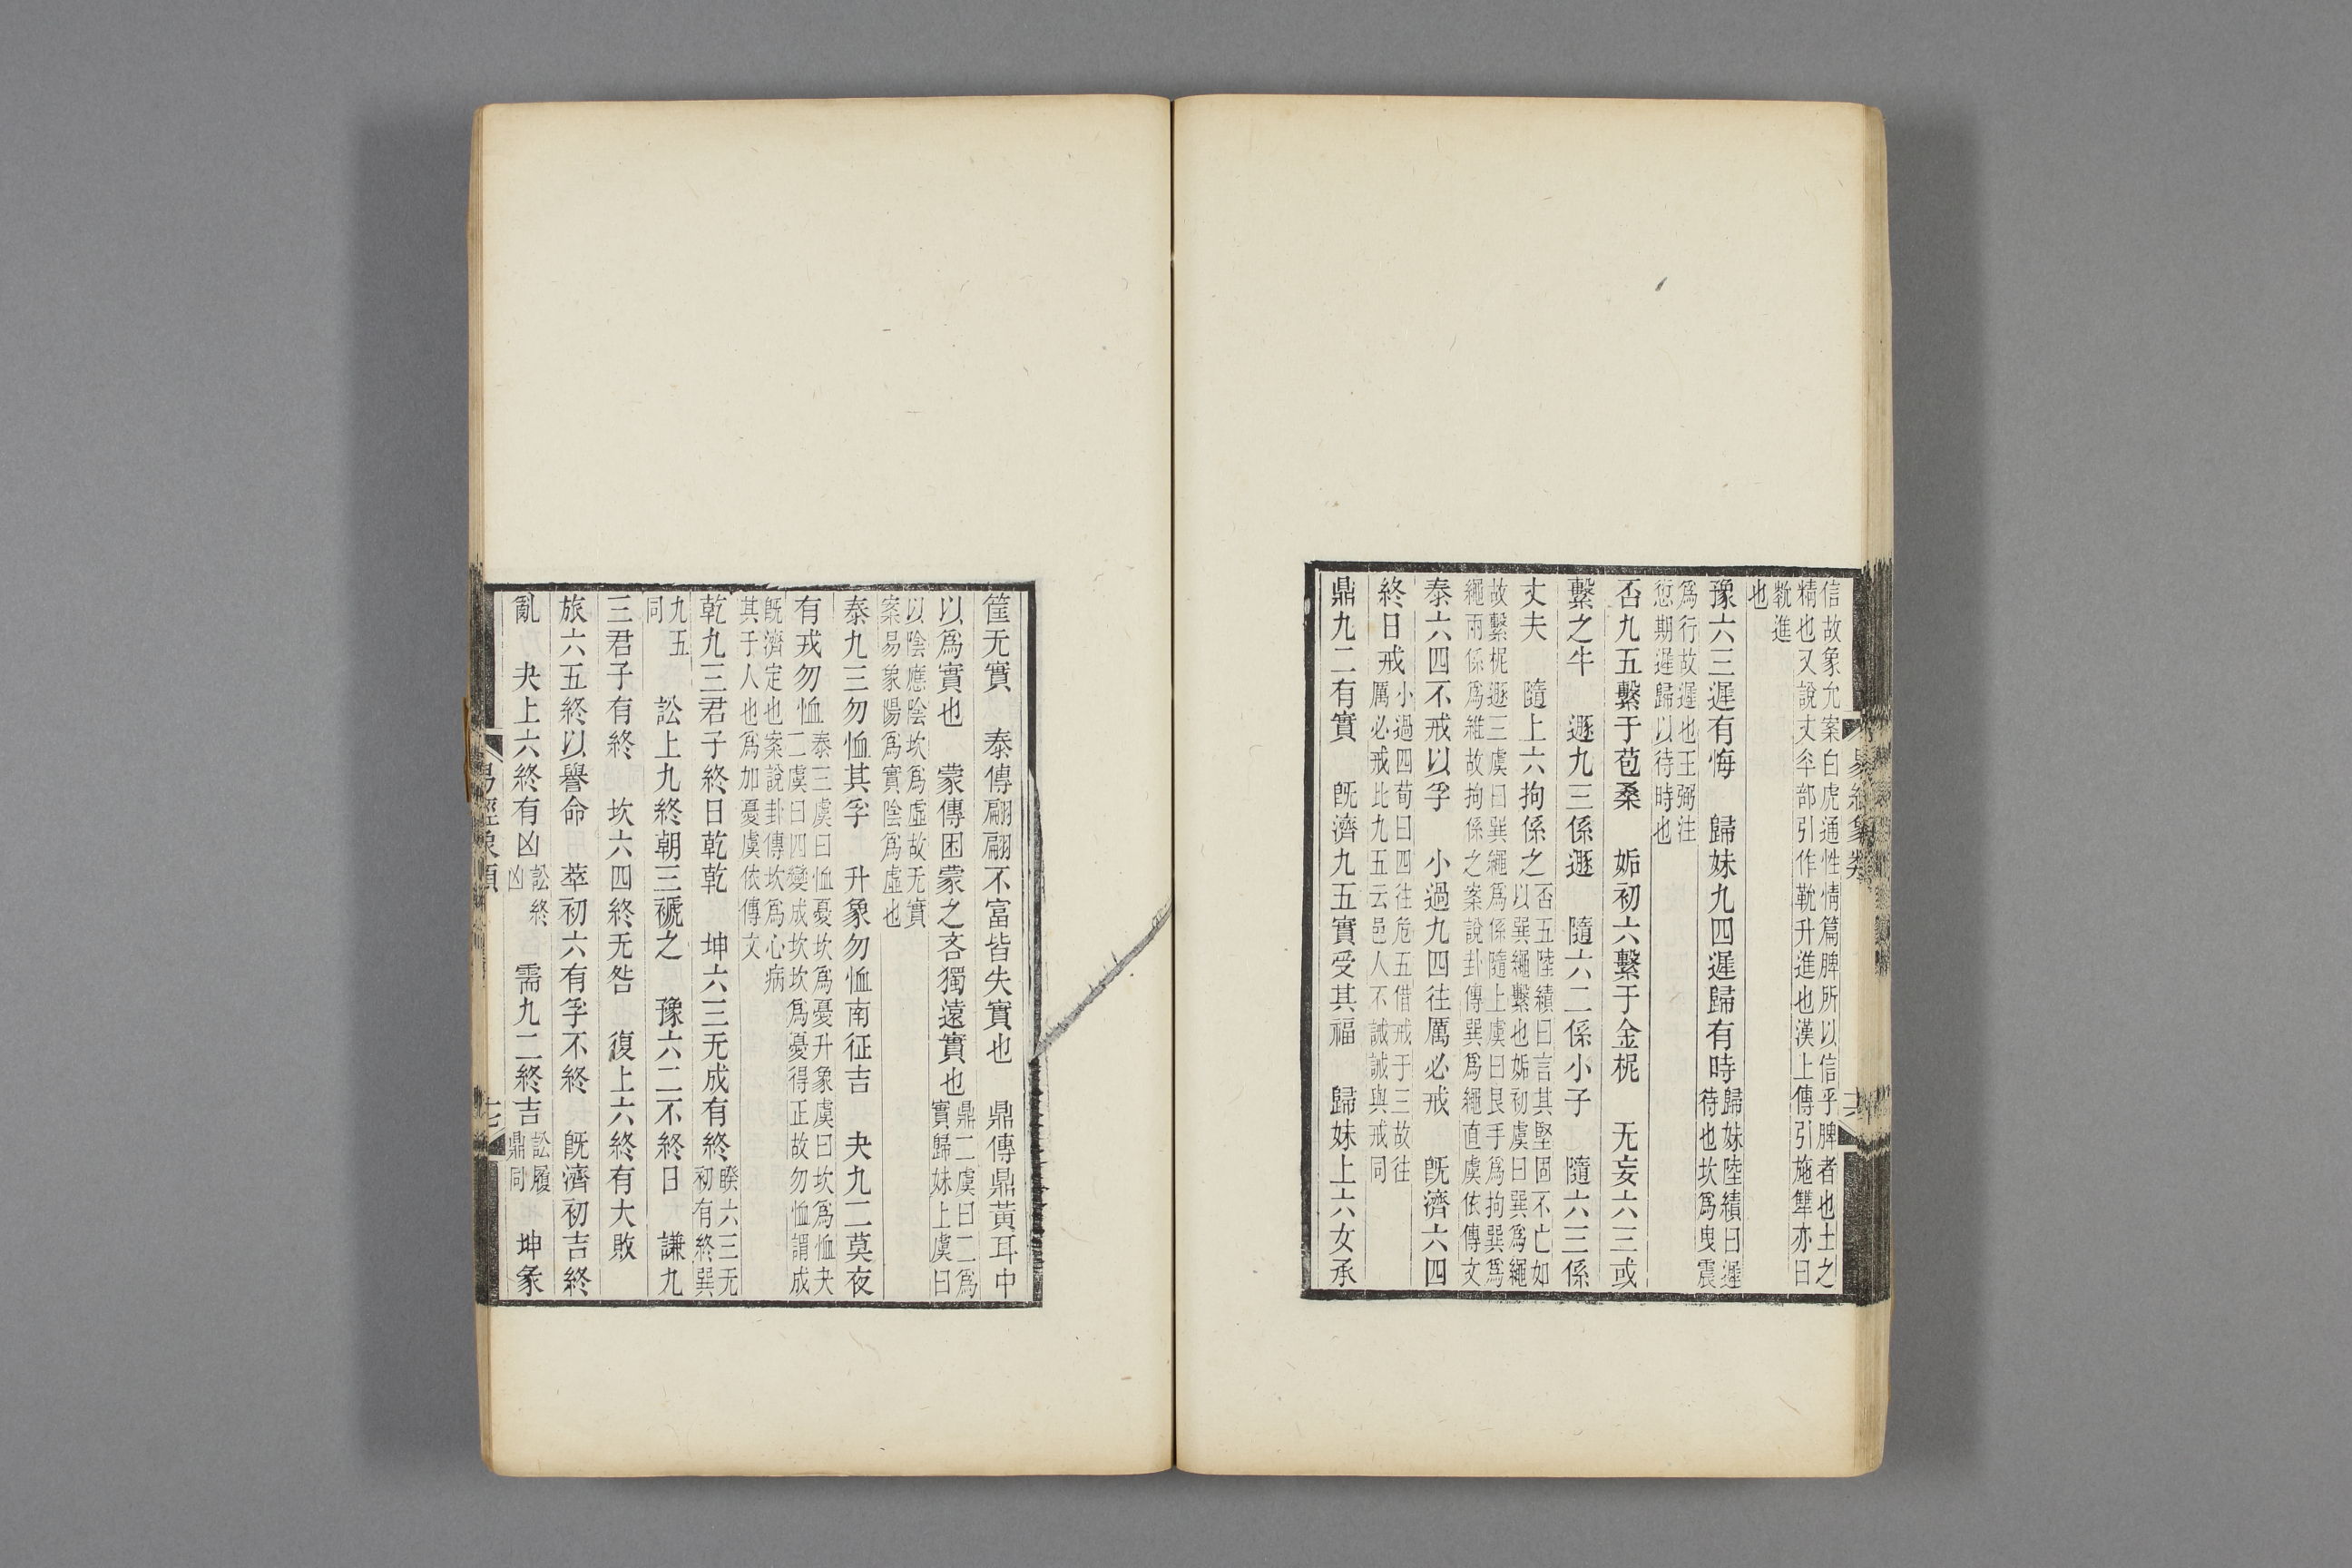 信故象允案白虎通性情篇脾所以信乎脾者也土之
精也又說丈夲部引作靴升進也漢上傳引施讐亦曰
靴進
也
豫六三遲有悔　歸妹九四遲歸有時
歸妹陸績曰遲
待也坎爲曳震
爲行故遲也王弼注
愆期遲歸以待時也
否九五繫于苞桑　姤初六繫于金柅　无妄六三或
繫之牛　遯九三係遯　隨六二係小子　隨六三係
丈夫　隨上六拘係之
否五陸績曰言其堅固不亡如
以巽繩繫也姤初虞曰巽爲繩
故繫柅遯三虞曰巽繩爲係隨上虞曰艮手爲拘巽爲
繩兩係爲維故拘係之案說卦傳巽爲繩直虞依傳文
泰六四不戒以孚　小過九四往厲必戒　旣濟六四
終日戒
小過四荀曰四往危五借戒于三故往
厲必戒比九五云邑人不誡誡與戒同
鼎九二有實　旣濟九五實受其福　歸妹上六女承
易經象類
十六
筐无實　泰傳翩翩不富皆失實也　鼎傳鼎黃耳中
以爲實也　蒙傳困蒙之吝獨遠實也
鼎二虞曰二爲
實歸妹上虞曰
以陰應陰坎爲虛故无實
案易象陽爲實陰爲虛也
泰九三勿恤其孚　升象勿恤南征吉　夬九二莫夜
有戎勿恤
泰三虞曰恤憂坎爲憂升象虞曰坎爲恤夬
二虞曰四變成坎坎爲憂得正故勿恤謂成
旣濟定也案說卦傳坎爲心病
其于人也爲加憂虞依傳文
乾九三君子終日乾乾　坤六三无成有終
睽六三无
初有終巽
九五
同
訟上九終朝三褫之　豫六二不終日　謙九
三君子有終　坎六四終无咎　復上六終有大敗
旅六五終以譽命　萃初六有孚不終　旣濟初吉終
亂　夬上六終有凶
訟終
凶
需九二終吉
訟履
鼎同
坤彖
易經象類
十七